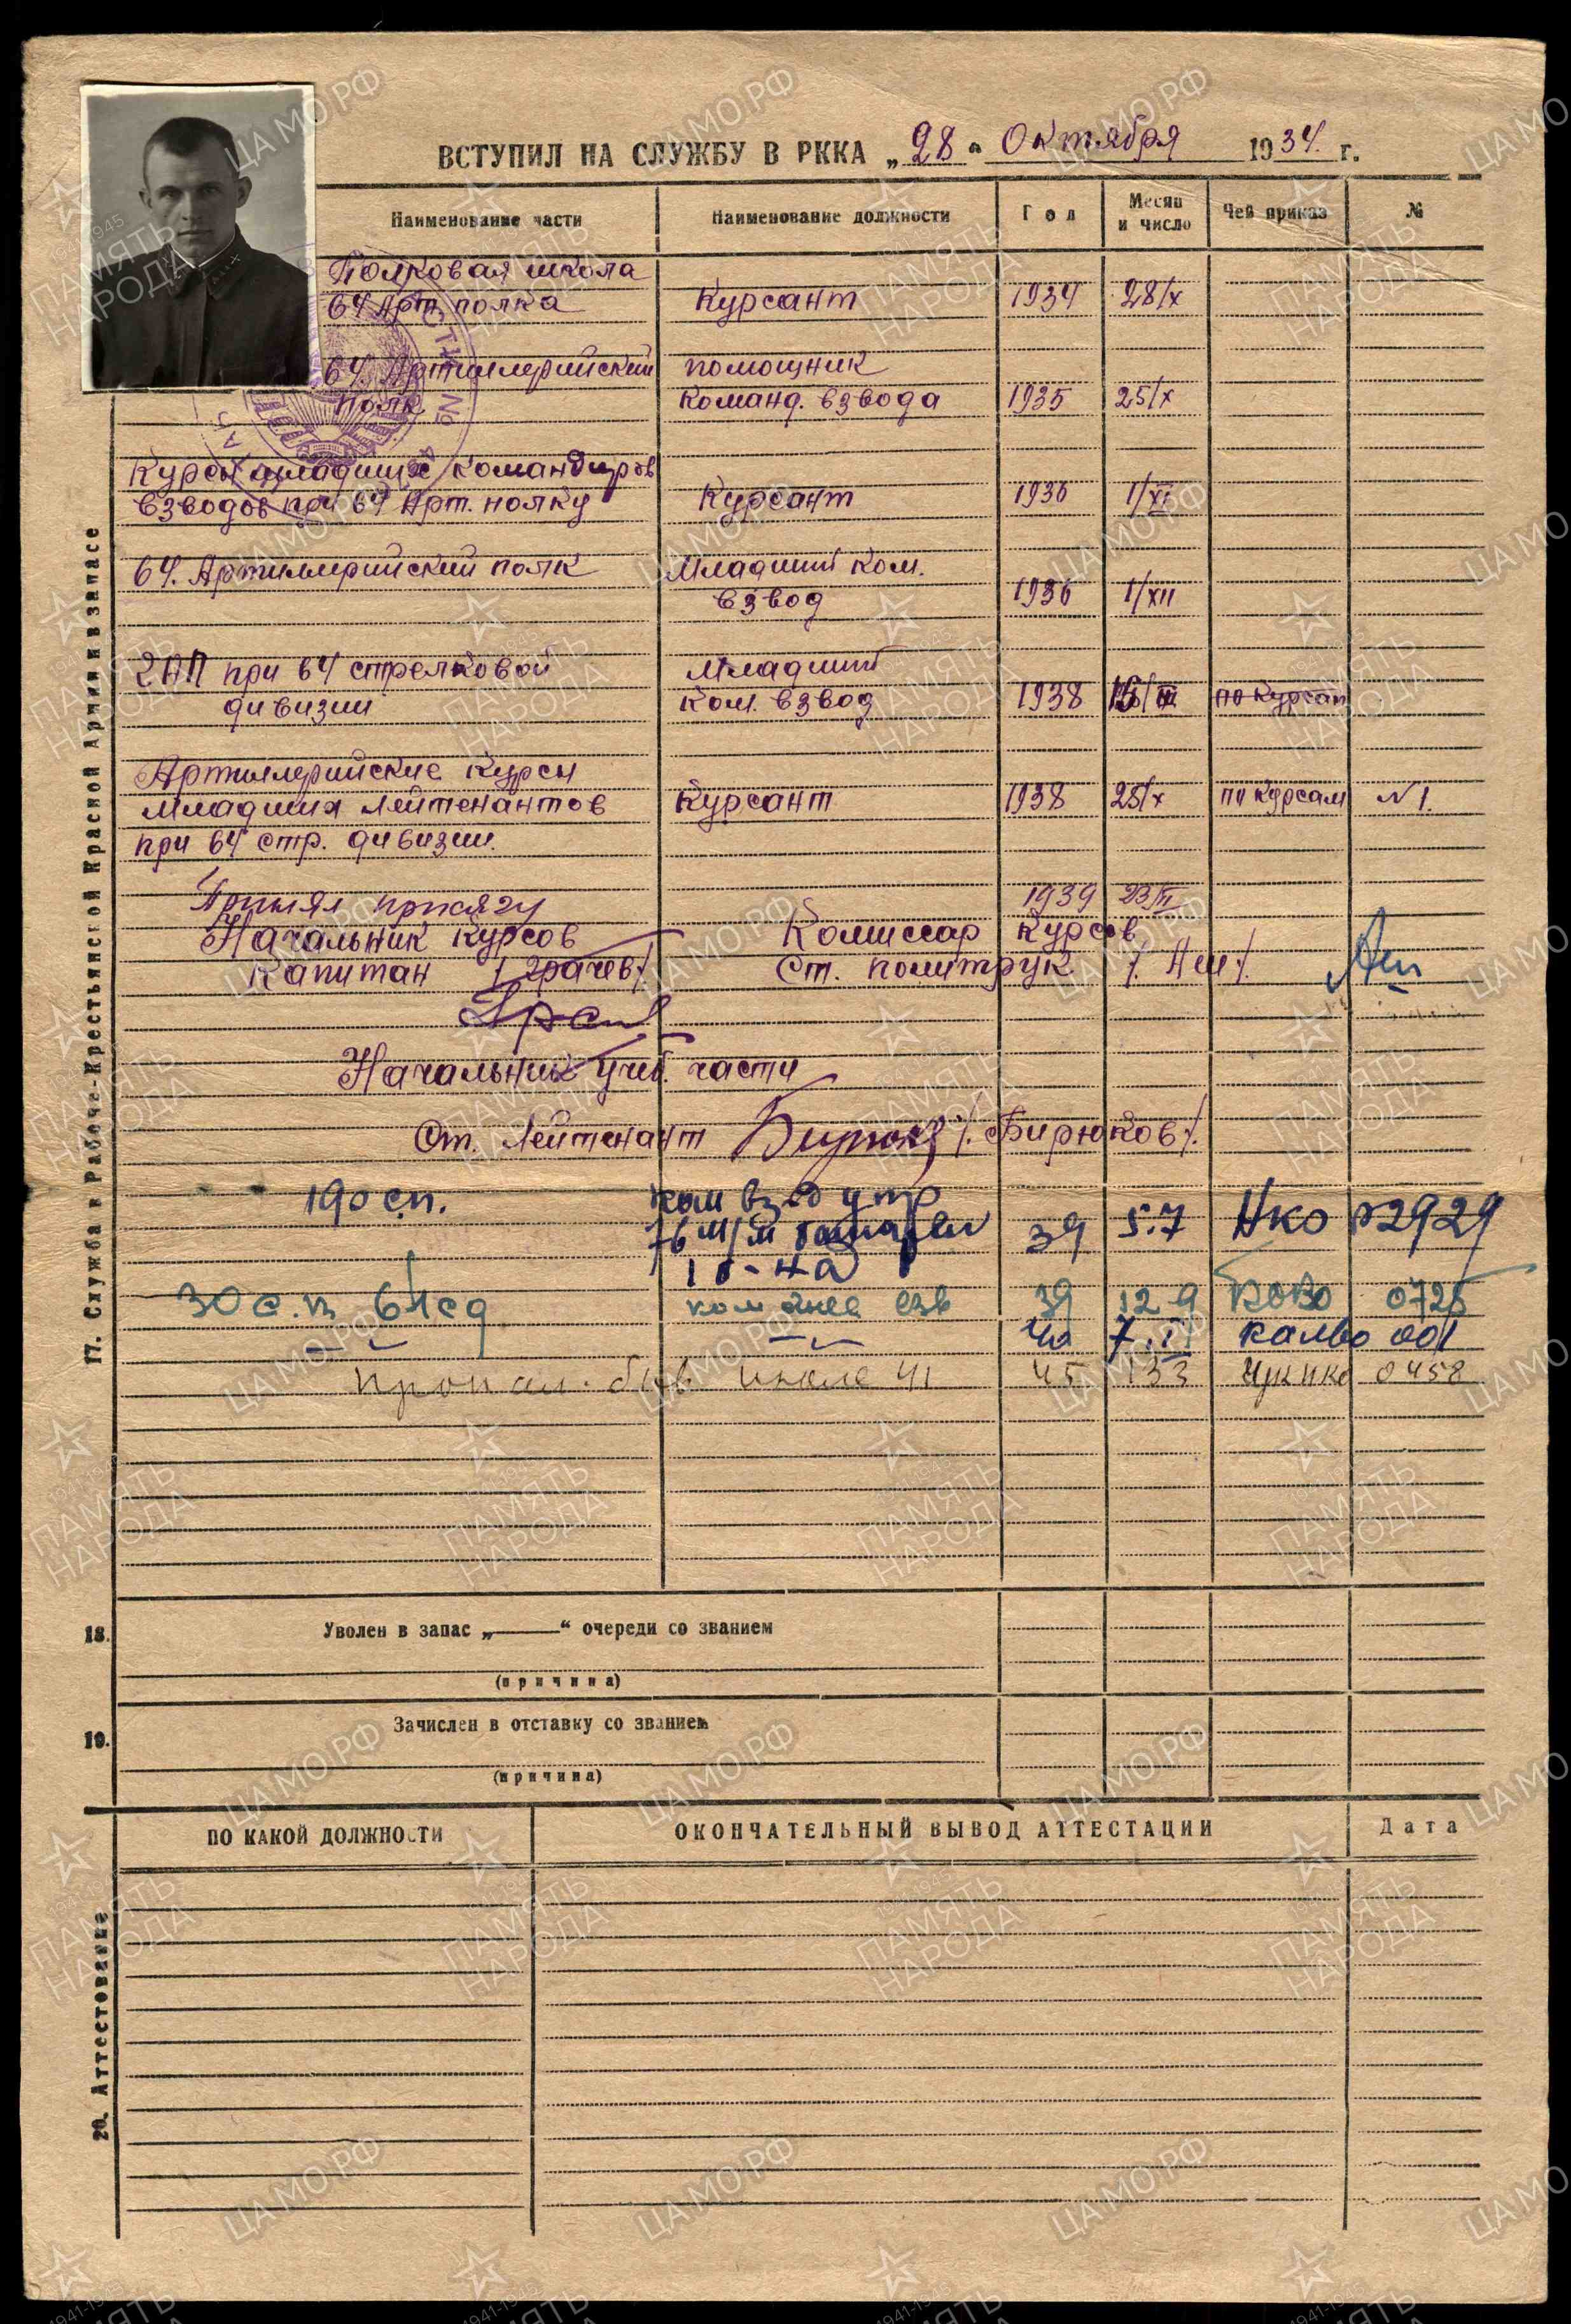 ВСТУПИЛ НА СЛУЖБУ В РККА „28“ Октября 1934. г.
Наименование части Наименование должности Год Месяц и число Чей приказ №
Полковая школа
64 Арт. полка Курсант 1934 28/X
64. Артиллерийский помощник
полк Команд. взвода 1935 25/X
Курсы младших командиров
взводов при 64 Арт. полку Курсант 1936 1/XI
64. Артиллерийский полк Младший Ком.
взвод 1936 1/XII
2АП при 64 стрелковой Младший
дивизии Ком. взвод 1938 по Курсам
Артиллерийские Курсы
младших лейтенантов Курсант 1938 25/X по Курсам №1.
при 64 стр. дивизии.
Принял присягу 1939 23/II
Начальник курсов Комиссар Курсов
Капитан /Грачев/. Ст. политрук
Начальник учеб. части
Ст. Лейтенант /.Бирюков/.
190 сп. ком взвод упр
76 м/м батареи 39 5.7 НКО 2929
1 б-на
30 с.п 61 сд 39 12 9 КОВО 0725
40 7. КалВО 001
пропал. б/в. июле 41 45 13 3 ГУК НКО 0458
17. Служба в Рабоче-Крестьянской Красной Армии и в запасе
18. Уволен в запас „——“ очереди со званием
(причина)
19. Зачислен в отставку со званием
(причина)
ПО КАКОЙ ДОЛЖНОСТИ ОКОНЧАТЕЛЬНЫЙ ВЫВОД АТТЕСТАЦИИ Дата
20. Аттестование
ЦАМО.РФ
1941-1945
ПАМЯТЬ
НАРОДА